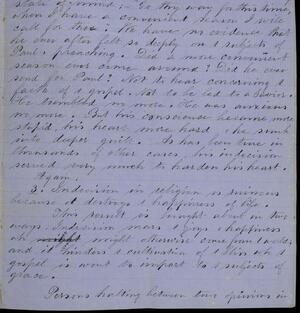 state of ground: "Go thy way for this time,
when I have a convenient season I will
call for thee." We have no evidence that
he ever after felt so deeply on t subjects of
Paul's preaching. Did a more convenient
season ever come around? Did he ever
send for Paul? Not to hear concerning t
facts of t gospel. Not to be led to a Savior.
He trembled no more. He was anxious
no more. But his conscience became more
stupid, his heart more hard & he sunk
into deeper guilt. As has been true in
thousands of other cases, his indecision
served very much to harden his heart.
Again,
3. Indecision in religion is ruinous
because it destroys t happiness of life.
This result is brought about in two
ways. Indecision mars t joys & happiness
wh might otherwise come from t world,
and it hinders t cultivation of t
gospel is wont to impart to t subjects of
grace.
Persons halting between two opinions in